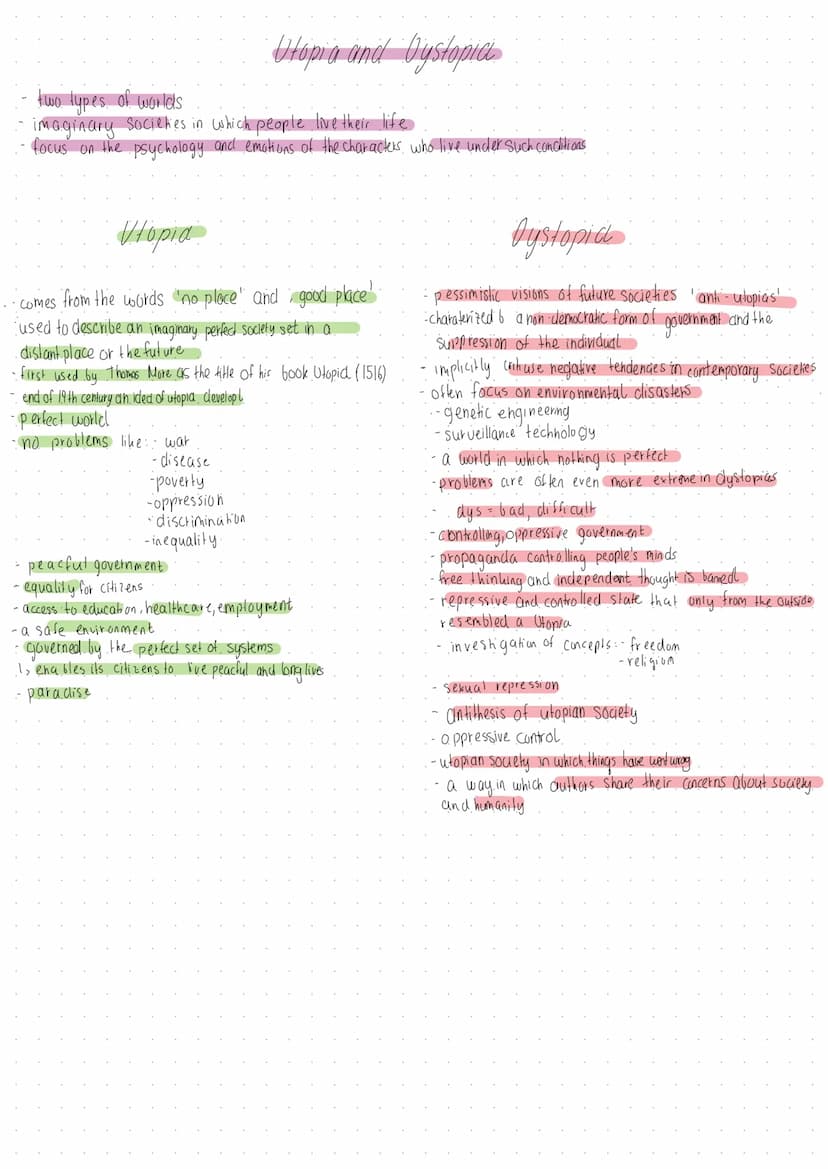 Utopia and Dystopia
- two types of worlds
- imaginary societies in which people live their life
- focus on the psychology and emotions of the characters who live under such conditions
Utopia
- comes from the words 'no place' and ,good place'
used to describe an imaginary perfect society set in a
distant place or the future
- first used by Thomas More as the title of his book Utopia (1516)
- end of 19th century an idea of utopia developt
- perfect world
- no problems like: - war
- disease
- poverty
- oppression
- discrimination
- inequality
- peacful government
- equality for citizens
- access to education, healthcare, employment
- a safe environment
- governed by the perfect set of systems
↳ enables its citizens to live peacful and long lives
- paradise
Dystopia
- pessimistic visions of future societies 'anti-utopias'
- charaterized b a non-democratic form of government and the
suppression of the individual
- implicitly negative tendencies in contemporary societies
- often focus on environmental disasters
- genetic engineering
- surveillance technology
- a world in which nothing is perfect
- problems are often even more extreme in dystopias
- dys = bad, difficult
- controlling, oppressive government
- propaganda controlling people's minds
- free thinking and independent thought is baned
- repressive and controlled state that only from the outside
resembled a Utopia
- investigation of concepts: - freedom
- religion
- sexual repression
- antithesis of utopian society
- oppressive control
- utopian society in which things have went wrong
- a way in which authors share their concerns about society
and humanity